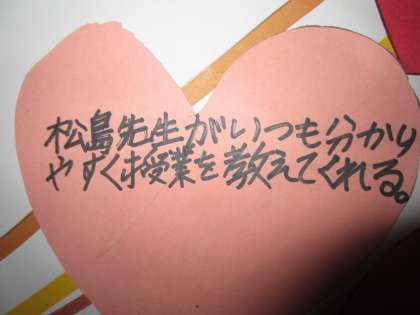 松島先生がいつも分かり
やすく授業を教えてくれる。